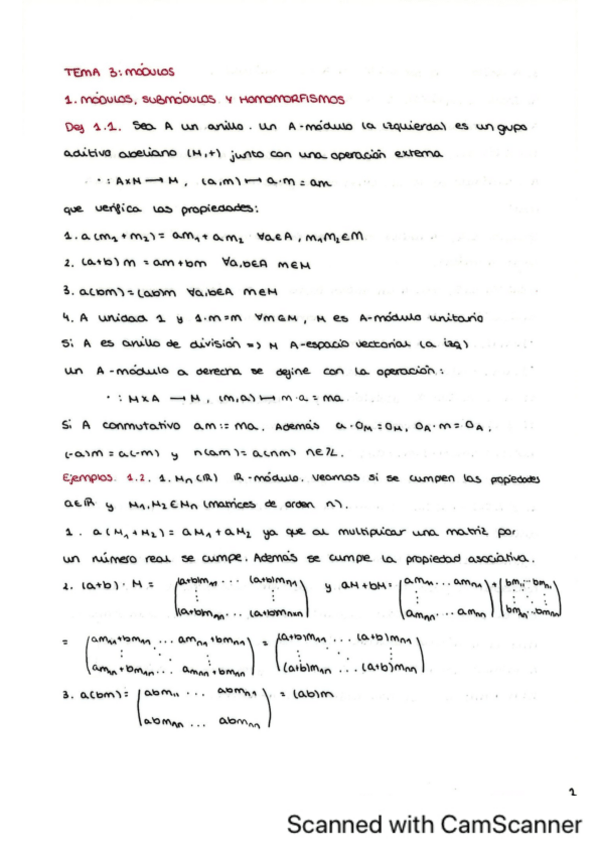 TEMA 3: MÓDULOS
1. MÓDULOS, SUBMÓDULOS Y HOMOMORFISMOS
Def 1.1. Sea A un anillo. Un A-módulo (a izquierda) es un grupo
aditivo abeliano (M,+) junto con una operación externa
· : A×M → M, (a,m) ↦ a·m = am
que verifica las propiedades:
1. a(m₁+m₂) = am₁+am₂ ∀a∈A, m₁m₂∈M
2. (a+b)m = am+bm ∀a,b∈A m∈M
3. a(bm) = (ab)m ∀a,b∈A m∈M
4. A unidad 1 y 1·m=m ∀m∈M, M es A-módulo unitario
Si A es anillo de división => M A-espacio vectorial (a izq)
Un A-módulo a derecha se define con la operación:
· : M×A → M, (m,a) ↦ m·a = ma
Si A conmutativo am := ma. Además a·0M = 0M, 0A·m = 0A,
(-a)m = a(-m) y n(am) = a(nm) n∈ℤ.
Ejemplos. 1.2. 1. Mn(ℝ) ℝ-módulo. Veamos si se cumpen las propiedades
a∈ℝ y M₁,M₂∈Mn (matrices de orden n).
1. a(M₁+M₂) = aM₁+aM₂ ya que al multiplicar una matriz por
un número real se cumpe. Además se cumple la propiedad asociativa.
2. (a+b)·M = ((a+b)m₁₁ ... (a+b)mn₁ ⋮ ⋮ (a+b)m₁n ... (a+b)mnn) y aM+bM = (am₁₁ ... amn₁ ⋮ ⋮ am₁n ... amnn) + (bm₁₁ ... bmn₁ ⋮ ⋮ bm₁n ... bmnn)
= (am₁₁+bm₁₁ ... amn₁+bmn₁ ⋮ ⋱ ⋮ am₁n+bm₁n ... amnn+bmnn) = ((a+b)m₁₁ ... (a+b)mn₁ ⋮ ⋱ ⋮ (a+b)m₁n ... (a+b)mnn)
3. a(bm) = (abm₁₁ ... abmn₁ ⋮ ⋮ abm₁n ... abmnn) = (ab)m
1
Scanned with CamScanner